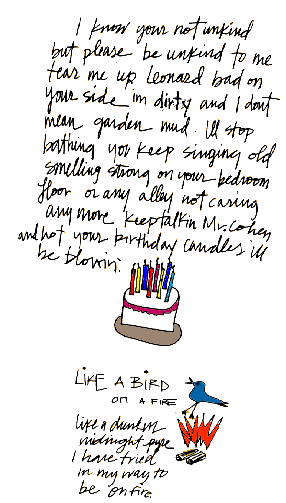 I know your not unkind
but please be unkind to me
tear me up Leonard bad on
your side im dirty and I dont
mean garden mud. Ill stop
bathing you keep singing old
smelling strong on your bedroom
floor or any alley not caring
any more keep talkin Mr. Cohen
and not your birthday candles ill
be blowin'.
LIKE A BIRD
ON A FIRE
like a drunken
midnight
I have tried
in my way to
be on fire